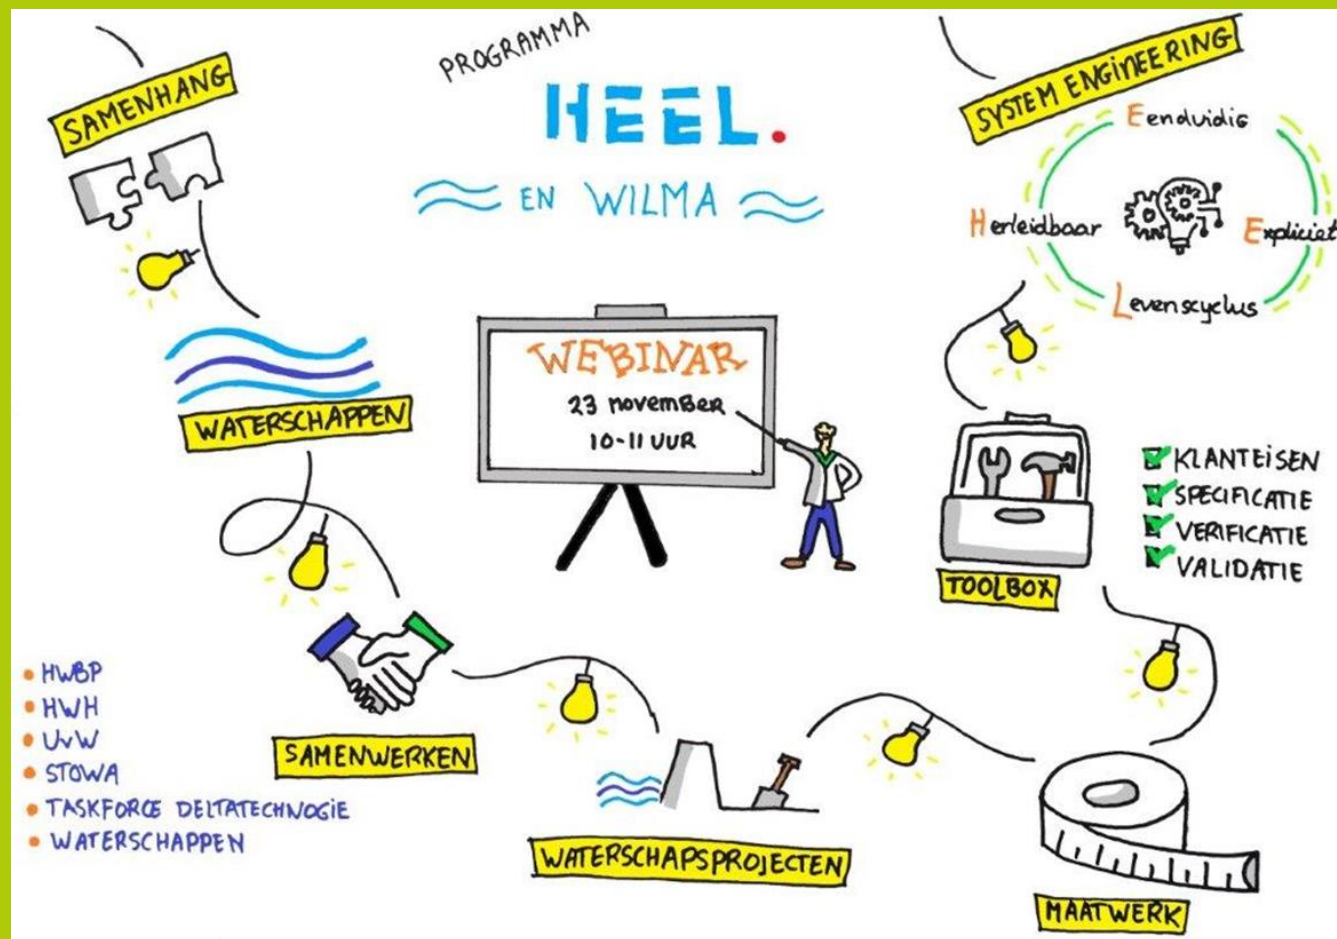 PROGRAMMA
HEEL.
EN WILMA
SAMENHANG
SYSTEM ENGINEERING
Eenduidig
Herleidbaar
Expliciet
Levenscyclus
WATERSCHAPPEN
WEBINAR
23 november
10-11 UUR
KLANTEISEN
SPECIFICATIE
VERIFICATIE
VALIDATIE
TOOLBOX
• HWBP
• HWH
• UvW
• STOWA
• TASKFORCE DELTATECHNOGIE
• WATERSCHAPPEN
SAMENWERKEN
WATERSCHAPSPROJECTEN
MAATWERK